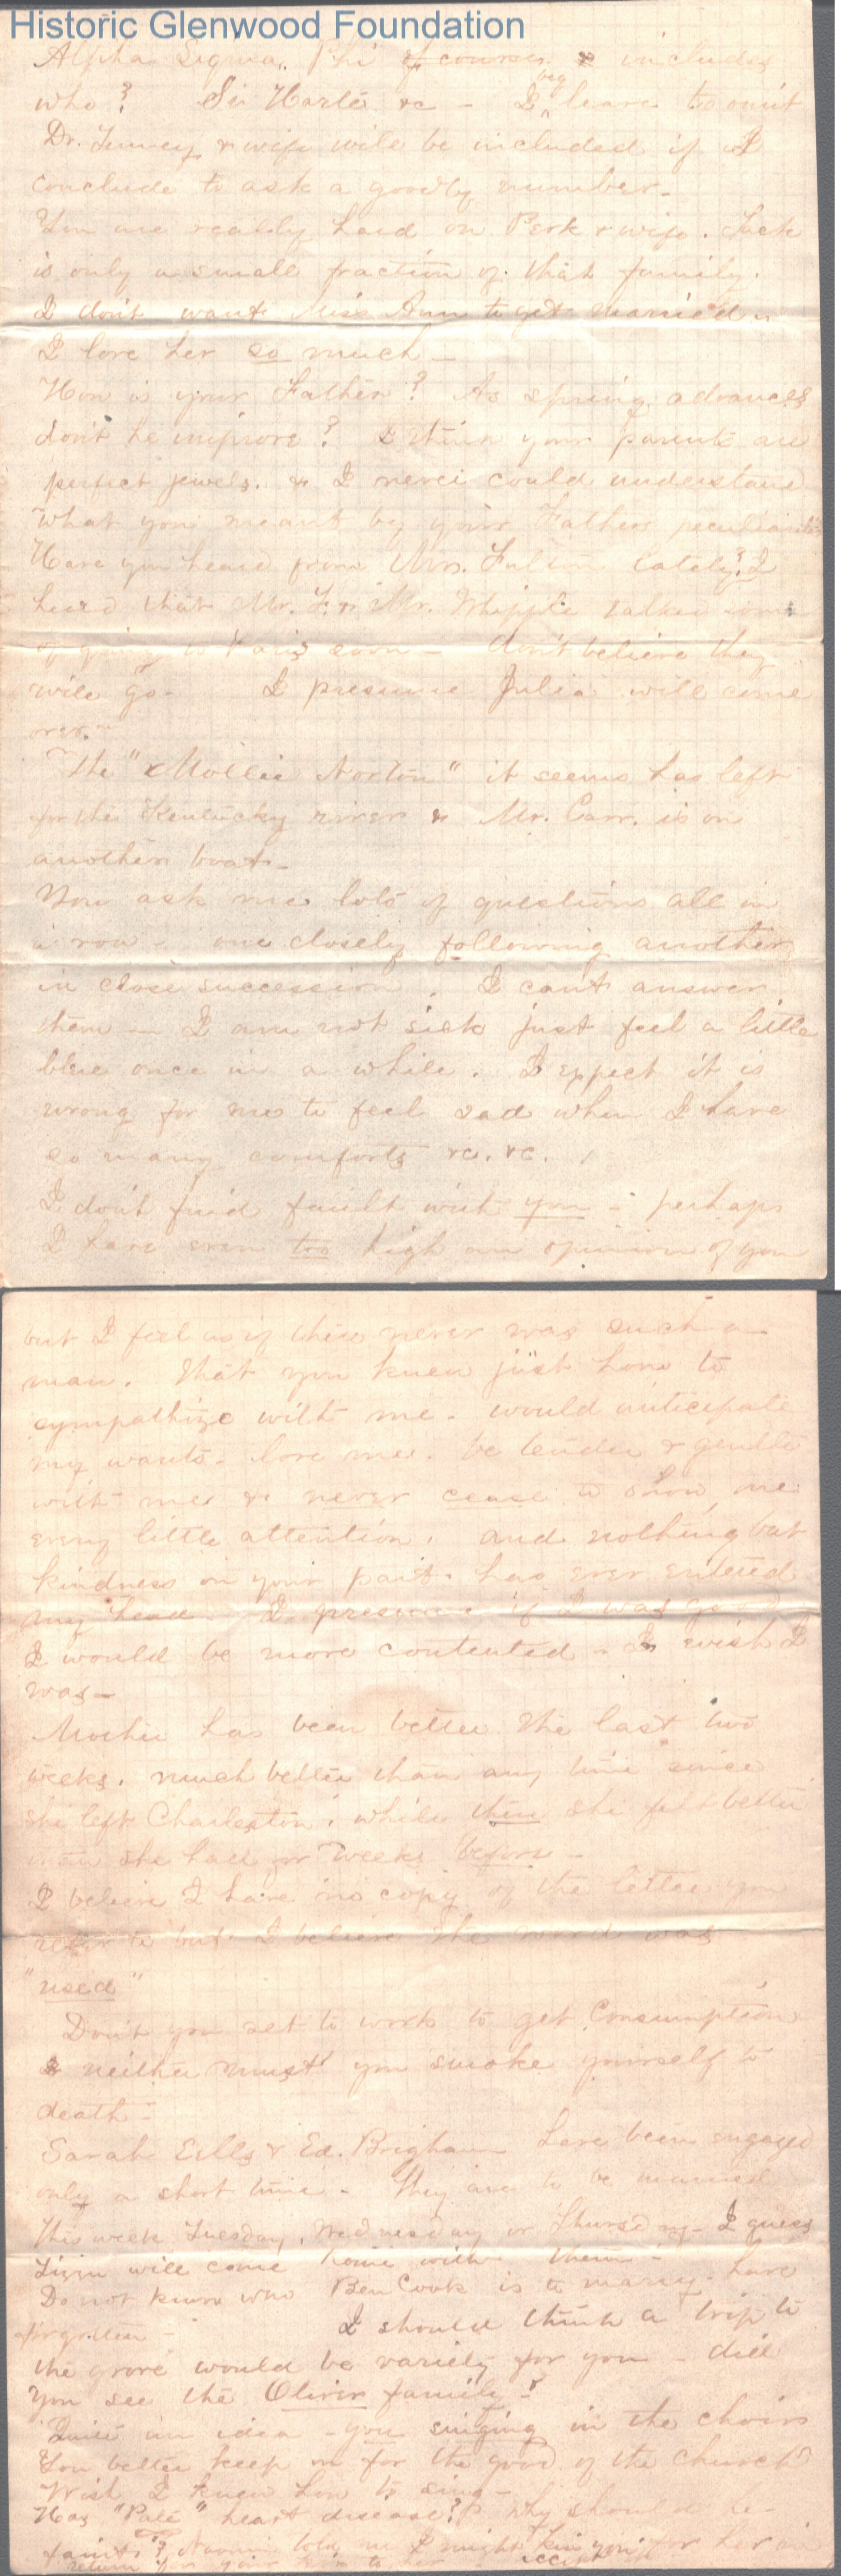 Historic Glenwood Foundation
Alpha Sigma Phi of course & includes
who? Sir Harle &c - I beg leave to omit
Dr. & wife will be included if I
conclude to ask a goodly number -
You are really hard on Perk & wife. Jack
is only a small fraction of that family.
I don't want Miss Ann to get married
I love her so much -
How is your Father? As spring advances
don't he improve? I think your parents are
perfect jewels. & I never could understand
what you meant by your Fathers peculiarities
Have you heard from Mrs. Fulton lately? I
heard that Mr. F. & Mr. Whipple talked some
of going to Paris soon - don't believe they
will go - I presume Julia will come
over -
The "Mollie Norton" it seems has left
for the Kentucky river & Mr. Carr. is on
another boat -
You ask me lots of questions all in
a row - one closely following another
in close succession. I can't answer
them - I am not sick just feel a little
blue once in a while. I expect it is
wrong for me to feel sad when I have
so many comforts &c. &c.
I don't find fault with you - perhaps
I have even too high an opinion of you
but I feel as if there never was such a
man. That you knew just how to
sympathize with me - would anticipate
my wants - love me. be tender & gentle
with me & never cease to show me
every little attention. and nothing but
kindness on your part has ever entered
my head. I presume if I was good
I would be more contented - I wish I
was -
Mother has been better the last two
weeks. much better than any time since
she left Charleston. while then she felt better
than she had for weeks before -
I believe I have no copy of the letter you
refer to but I believe the word was
"used"
Don't you set to work to get Consumption
& neither must you smoke yourself to
death -
Sarah Eells & Ed. Brigham have been engaged
only a short time - They are to be married
this week Tuesday, Wednesday or Thursday - I guess
Lizzie will come home with them -
Do not know who Ben Cook is to marry. have
forgotten - I should think a trip to
the grove would be variety for you - did
you see the Oliver family?
Quite an idea - you singing in the choir
You better keep on for the good of the church
Wish I knew how to sing -
Has "Pate" heart disease? Why should he
faint? told me I might kiss you for her in
return for your to her